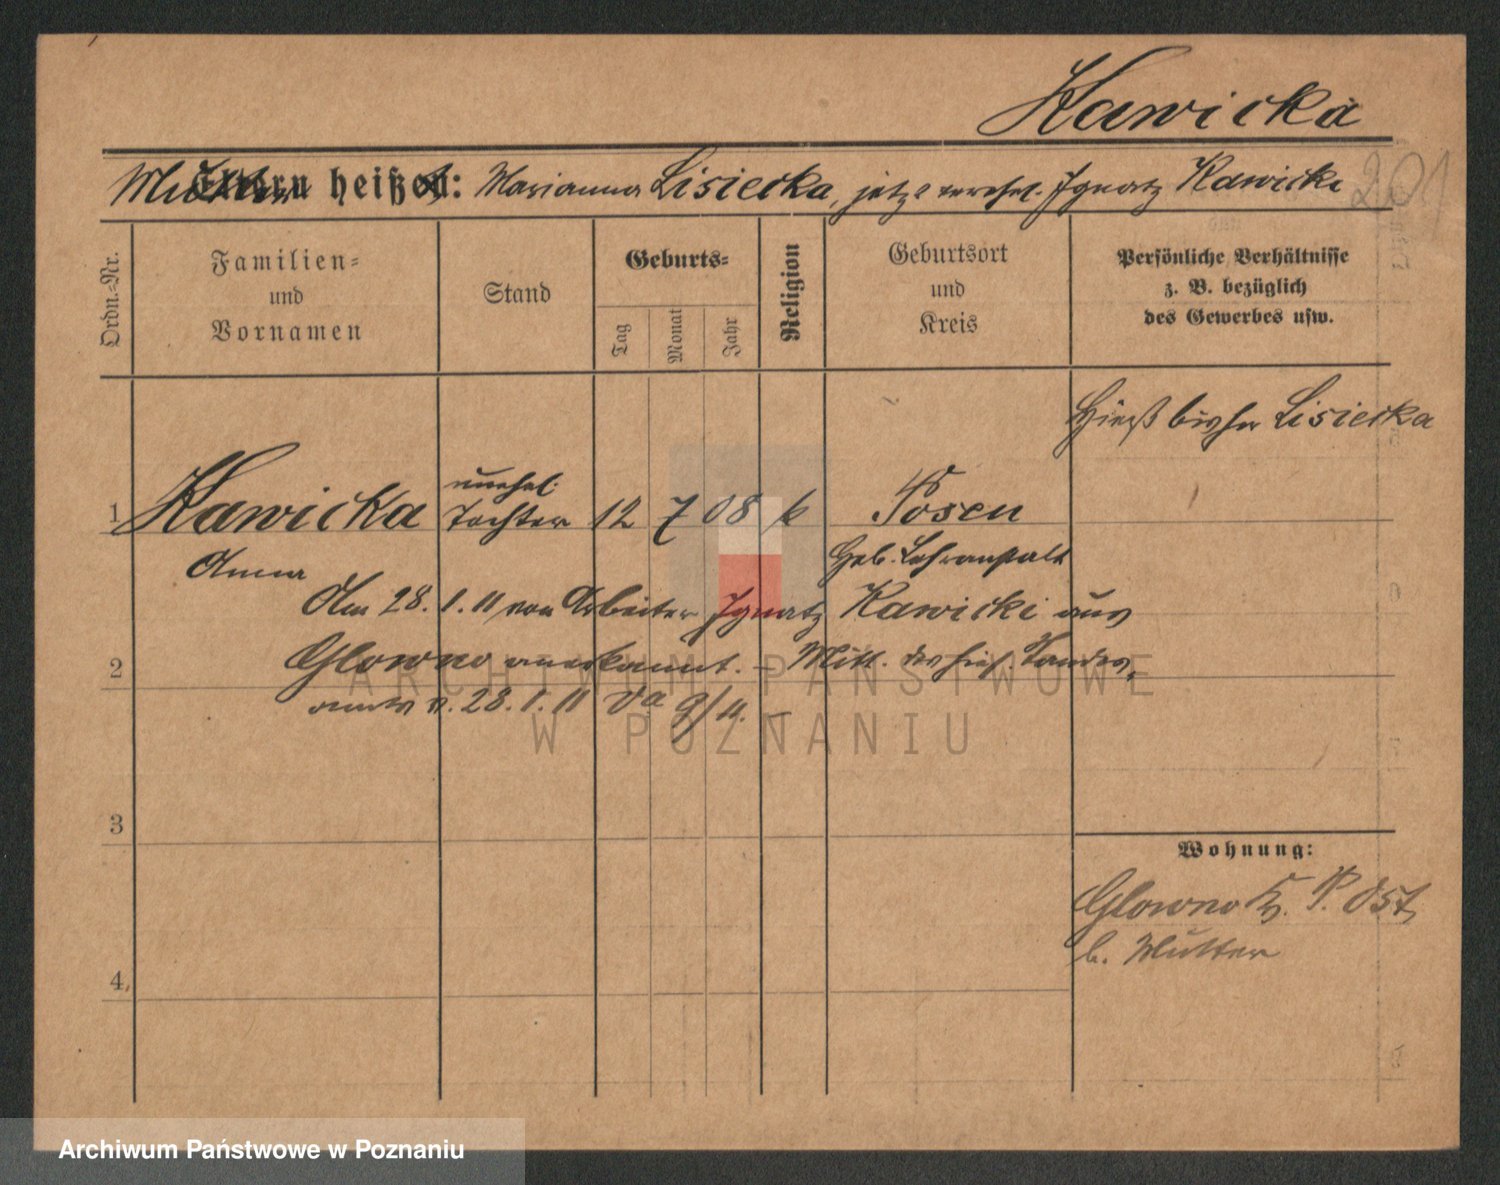 Kawicka
Mutter heißt: Marianna Lisiecka, jetzt verehel. Ignatz Kawicki
201
Ordn.=Nr.
Familien=
und
Vornamen
Stand
Geburts=
Tag
Monat
Jahr
Religion
Geburtsort
und
Kreis
Persönliche Verhältnisse
z. B. bezüglich
des Gewerbes usw.
Hieß bisher Lisiecka
unehel.
1 Kawicka Tochter 12 7 08 k Posen
Anna Geb. Lehranstalt
Am 28. 1. 11 von Arbeiter Ignatz Kawicki aus
2 Glowno anerkannt. – Mitt. des hies. Standes,
amts v. 28. 1. 11 Va 9/11. –
3
Wohnung:
Glowno Kr. P. Ost,
b. Mutter
4
ARCHIWUM PAŃSTWOWE
W POZNANIU
Archiwum Państwowe w Poznaniu